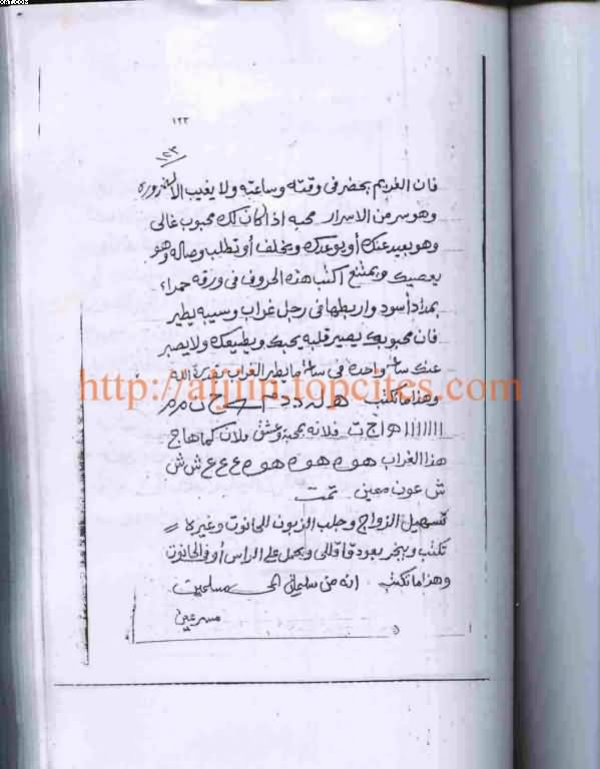 ١٢٣
١٥٣
فان الغريم يحضر فى وقته وساعته ولا يغيب الا لضروره
وهو سر من الاسرار محبه اذا كان لك محبوب غالى
وهو بعيد عنك أو يوعدك ويخلف أو تطلب وصاله وهو
يعصيك ويمتنع اكتب هذه الحروف فى ورقه حمراء
بمداد أسود واربطها فى رجل غراب وسيبه يطير
فان محبوبك يصير قلبه يحبك ويطيعك ولا يصبر
عنك ساعة واحده فى ساعة ما يطير الغراب بقدرة الله
http://aljiin.topcites.com
وهذا ما تكتب
ااااااا هواج ت فلانه بمحبة وعشق فلان كما هاج
هذا الغراب هوه هوه هوه ع ع ع ش ش
ش عون معين تمت
تسهيل الزواج وجلب الزبون للحانوت وغيره
تكتب وبخر بعود قاقللى ويحمل على الراس أو فى الحانوت
وهذا ما تكتب انه من سليمان الى مسلمين
مسرعين